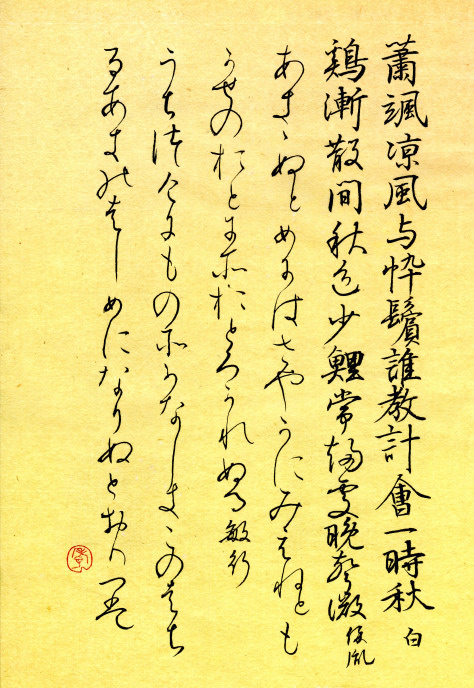 蕭颯凉風与悴鬢誰教計會一時秋 白
鶏漸散間秋色少鯉常趨処晩聲微 保胤
あきゝぬとめにはさやかにみえねとも
かせのおとにそおとろかれぬる 敏行
うちつけにものそかなしきこのはち
るあきのはしめになりぬとおもへは